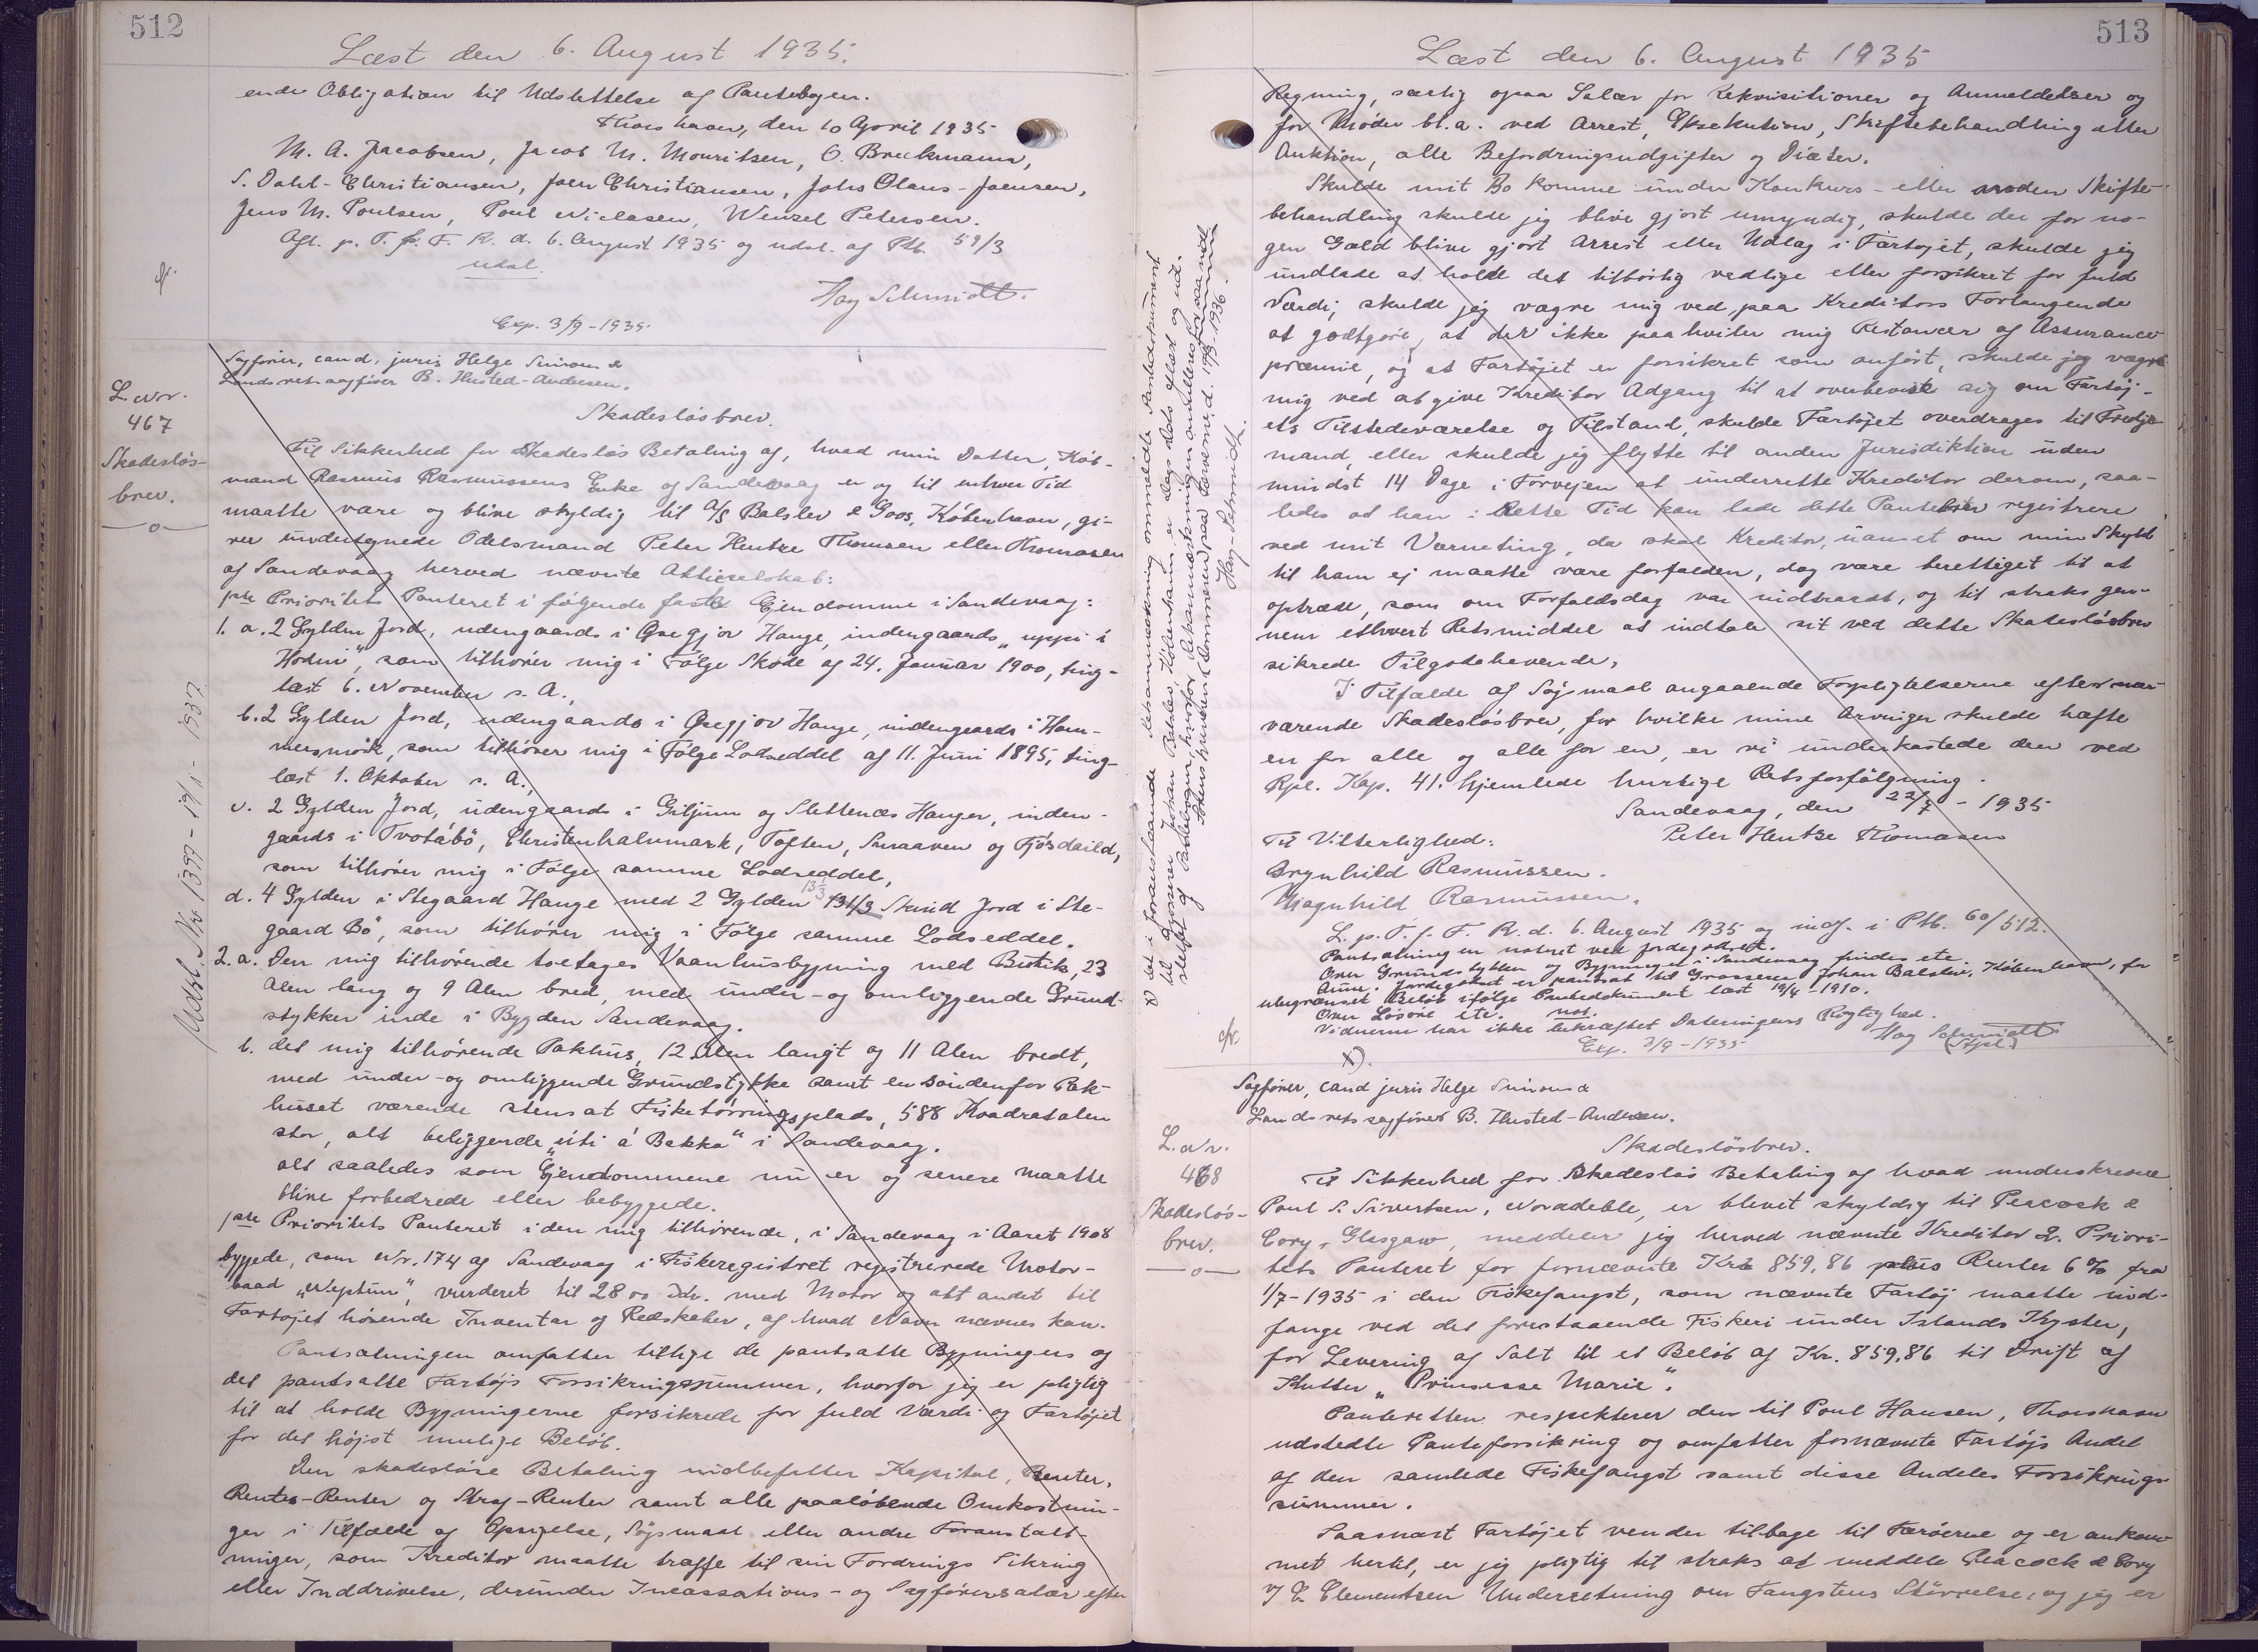 512
Læst den 6. August 1935.
ende Obligation til Udslettelse af Pantebogen.
Thorshavn, den 10 April 1935
M. A. Jacobsen, Jacob M. Mouritsen, O. Breckmann,
S. Dahl-Christiansen, Joen Christiansen, Johs Olaus-Joensen,
Jens M. Poulsen, Poul Niclasen, Wenzel Petersen.
Afl. p. T. f. F. R. d. 6. August 1935 og udsl. af Ptb. 59/3
udsl.
Hag Schmidt.
Exp. 3/9-1935.
Sagfører, cand. juris Helge Simonsen &
Landsretssagfører B. Husted-Andersen.
L. Nr.
467
Skadesløs-
brev.
Skadesløsbrev.
Til Sikkerhed for skadesløs Betaling af, hvad min Datter, Køb-
mand Rasmus Rasmussens Enke af Sandevaag er og til enhver Tid
maatte være og blive skyldig til A/S Balslev & Goos, København, gi-
ver undertegnede Odelsmand Peter Hentze Thomsen eller Thomasen
af Sandevaag herved nævnte Aktieselskab:
1ste Prioritets Panteret i følgende faste Ejendomme i Sandevaag:
1. a. 2 Gylden Jord, udengaards i Øsegjov Hauge, indengaards „uppi i
Hodni", som tilhører mig i Følge Skøde af 24. Januar 1900, ting-
læst 6. November s. A.,
b. 2 Gylden Jord, udengaards i Øsegjov Hauge, indengaards i Ham-
mersmørk, som tilhører mig i Følge Lodseddel af 11. Juni 1895, ting-
læst 1. Oktober s. A.,
c. 2 Gylden Jord, udengaards i Giljum og Slettenæs Hauger, inden-
gaards i Tvotábö, Christenhalvmark, Toften, Smaaven og Fjósdaild,
som tilhører mig i Følge samme Lodseddel,
d. 4 Gylden i Stegaard Hauge med 2 Gylden 13 1/3 Skind Jord i Ste-
gaard Bö, som tilhører mig i Følge samme Lodseddel.
2. a. Den mig tilhørende toetages Vaanhusbygning med Butik, 23
Alen lang og 9 Alen bred, med under- og omliggende Grund-
stykker inde i Bygden Sandevaag.
b. det mig tilhørende Pakhus, 12 Alen langt og 11 Alen bredt,
med under- og omliggende Grundstykke samt en søndenfor Pak-
huset værende stensat Fisketørringsplads, 588 Kvadratalen
stor, alt beliggende „úti á Bakka" i Sandevaag.
alt saaledes som Ejendommene nu er og senere maatte
blive forbedrede eller bebyggede.
1ste Prioritets Panteret i den mig tilhørende, i Sandevaag i Aaret 1908
byggede, som Nr. 174 af Sandevaag i Fiskeregistret registrerede Motor-
baad „Neptun", vurderet til 2800 Kr. med Motor og alt andet til
Fartøjet hørende Inventar og Redskaber, af hvad Navn nævnes kan.
Pantsætningen omfatter tillige de pantsatte Bygningers og
det pantsatte Fartøjs Forsikringssummer, hvorfor jeg er pligtig
til at holde Bygningerne forsikrede for fuld Værdi og Fartøjet
for det højst mulige Beløb.
Den skadesløse Betaling indbefatter Kapital, Renter,
Rentes-Renter og Straf-Renter samt alle paaløbende Omkostnin-
ger i Tilfælde af Opsigelse, Søgsmaal eller andre Foranstalt-
ninger, som Kreditor maatte træffe til sin Fordrings Sikring
eller Inddrivelse, derunder Incassations- og Sagførersalær efter
Udsl. Nr 1397 - 19/1 - 1937
513
Læst den 6. August 1935
Regning, særlig ogsaa Salær for Rekvisitioner og Anmeldelser og
for Møder bl. a. ved Arrest, Eksekution, Skiftebehandling eller
Auktion, alle Befordringsudgifter og Diæter.
Skulde mit Bo komme under Konkurs- eller anden Skifte-
behandling skulde jeg blive gjort umyndig, skulde der for no-
gen Gæld blive gjort Arrest eller Udlæg i Fartøjet, skulde jeg
undlade at holde det tilbørlig vedlige eller forsikret for fuld
Værdi, skulde jeg vægre mig ved, paa Kreditors Forlangende
at godtgøre, at der ikke paahviler mig Restancer af Assurance
præmie, og at Fartøjet er forsikret som anført, skulde jeg vægre
mig ved at give Kreditor Adgang til at overbevise sig om Fartøj-
ets Tilstedeværelse og Tilstand, skulde Fartøjet overdrages til Tredje-
mand, eller skulde jeg flytte til anden Jurisdiktion uden
mindst 14 Dage i Forvejen at underrette Kreditor derom, saa-
ledes at han i Rette Tid kan lade dette Pantebrev registrere
ved mit Værneting, da skal Kreditor, uanset om min Skyld
til ham ej maatte være forfalden, dog være berettiget til at
optræde, som om Forfaldsdag var indtraadt, og til straks gen-
nem ethvert Retsmiddel at indtale sit ved dette Skadesløsbrev
sikrede Tilgodehavende.
I Tilfælde af Søgsmaal angaaende Forpligtelserne efter nær-
værende Skadesløsbrev, for hvilke mine Arvinger skulde hæfte
en for alle og alle for en, er vi underkastede den ved
Rpl. Kap. 41. hjemlede hurtige Retsforfølgning.
Sandevaag, den 22/7 - 1935
Peter Hentze Thomasen
Til Vitterlighed:
Brynhild Rasmussen.
Magnhild Rasmussen.
L. p. T. f. F. R. d. 6. August 1935 og indf. i Ptb. 60/512.
Pantsætningen noteret ved Jordegodset.
Om Grundstykker og Bygninger i Sandevaag findes ete
Anm: Jordegodset er pantsat til Grosserer Johan Balslev, København, for
ubegrænset Beløb ifølge Pantedokument læst 19/4-1910.
Om Løsøre ete. not.
Vidnerne har ikke bekræftet Dateringens Rigtighed.
Hag Schmidt
Exp. 3/9-1935
x).
Sagfører, cand juris Helge Simonsen &
Landsretssagfører B. Husted-Andersen.
L. Nr.
468
Skadesløs-
brev.
Skadesløsbrev.
Til Sikkerhed for skadesløs Betaling af hvad underskrevne
Poul S. Sivertsen, Noradeble, er blevet skyldig til Peacock &
Cory, Glasgow, meddeler jeg herved nævnte Kreditor 2. Priori-
tets Panteret for fornævnte Kr. 859,86 plus Renter 6% fra
1/7-1935 i den Fiskefangst, som nævnte Fartøj maatte ind-
fange ved det forestaaende Fiskeri under Islands Kyster,
for Levering af Salt til et Beløb af Kr. 859,86 til Drift af
Kutter „Prinsesse Marie".
Panteretten respekterer den til Poul Hansen, Thorshavn
udstedte Panteforsikring og omfatter fornævnte Fartøjs Andel
af den samlede Fiskefangst samt disse Andeles Forsikrings-
summer.
Saasnart Fartøjet vender tilbage til Færøerne og er ankom-
met hertil, er jeg pligtig til straks at meddele Peacock & Cory
v/ E. Clementsen Underretning om Fangstens Størrelse, og jeg er